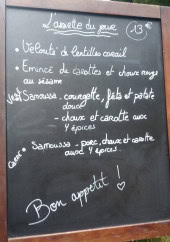 L'assiette du jour 13€
• Velouté de lentilles corail
• Emincé de carottes et choux rouge
au sésame
Samoussa - courgette, féta et patate
douce
- choux et carotte aux
4 épices
Samoussa - porc, choux et carotte
aux 4 épices
Bon appetit !